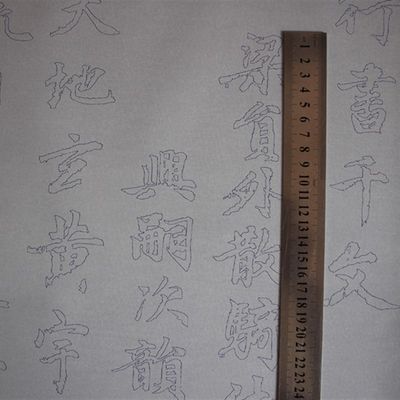 行書千文
1 2 3 4 5 6 7 8 9 10 11 12 13 14 15 16 17 18 19 20 21 22 23 24
梁員外散騎
興嗣次韻
天地玄黄宇